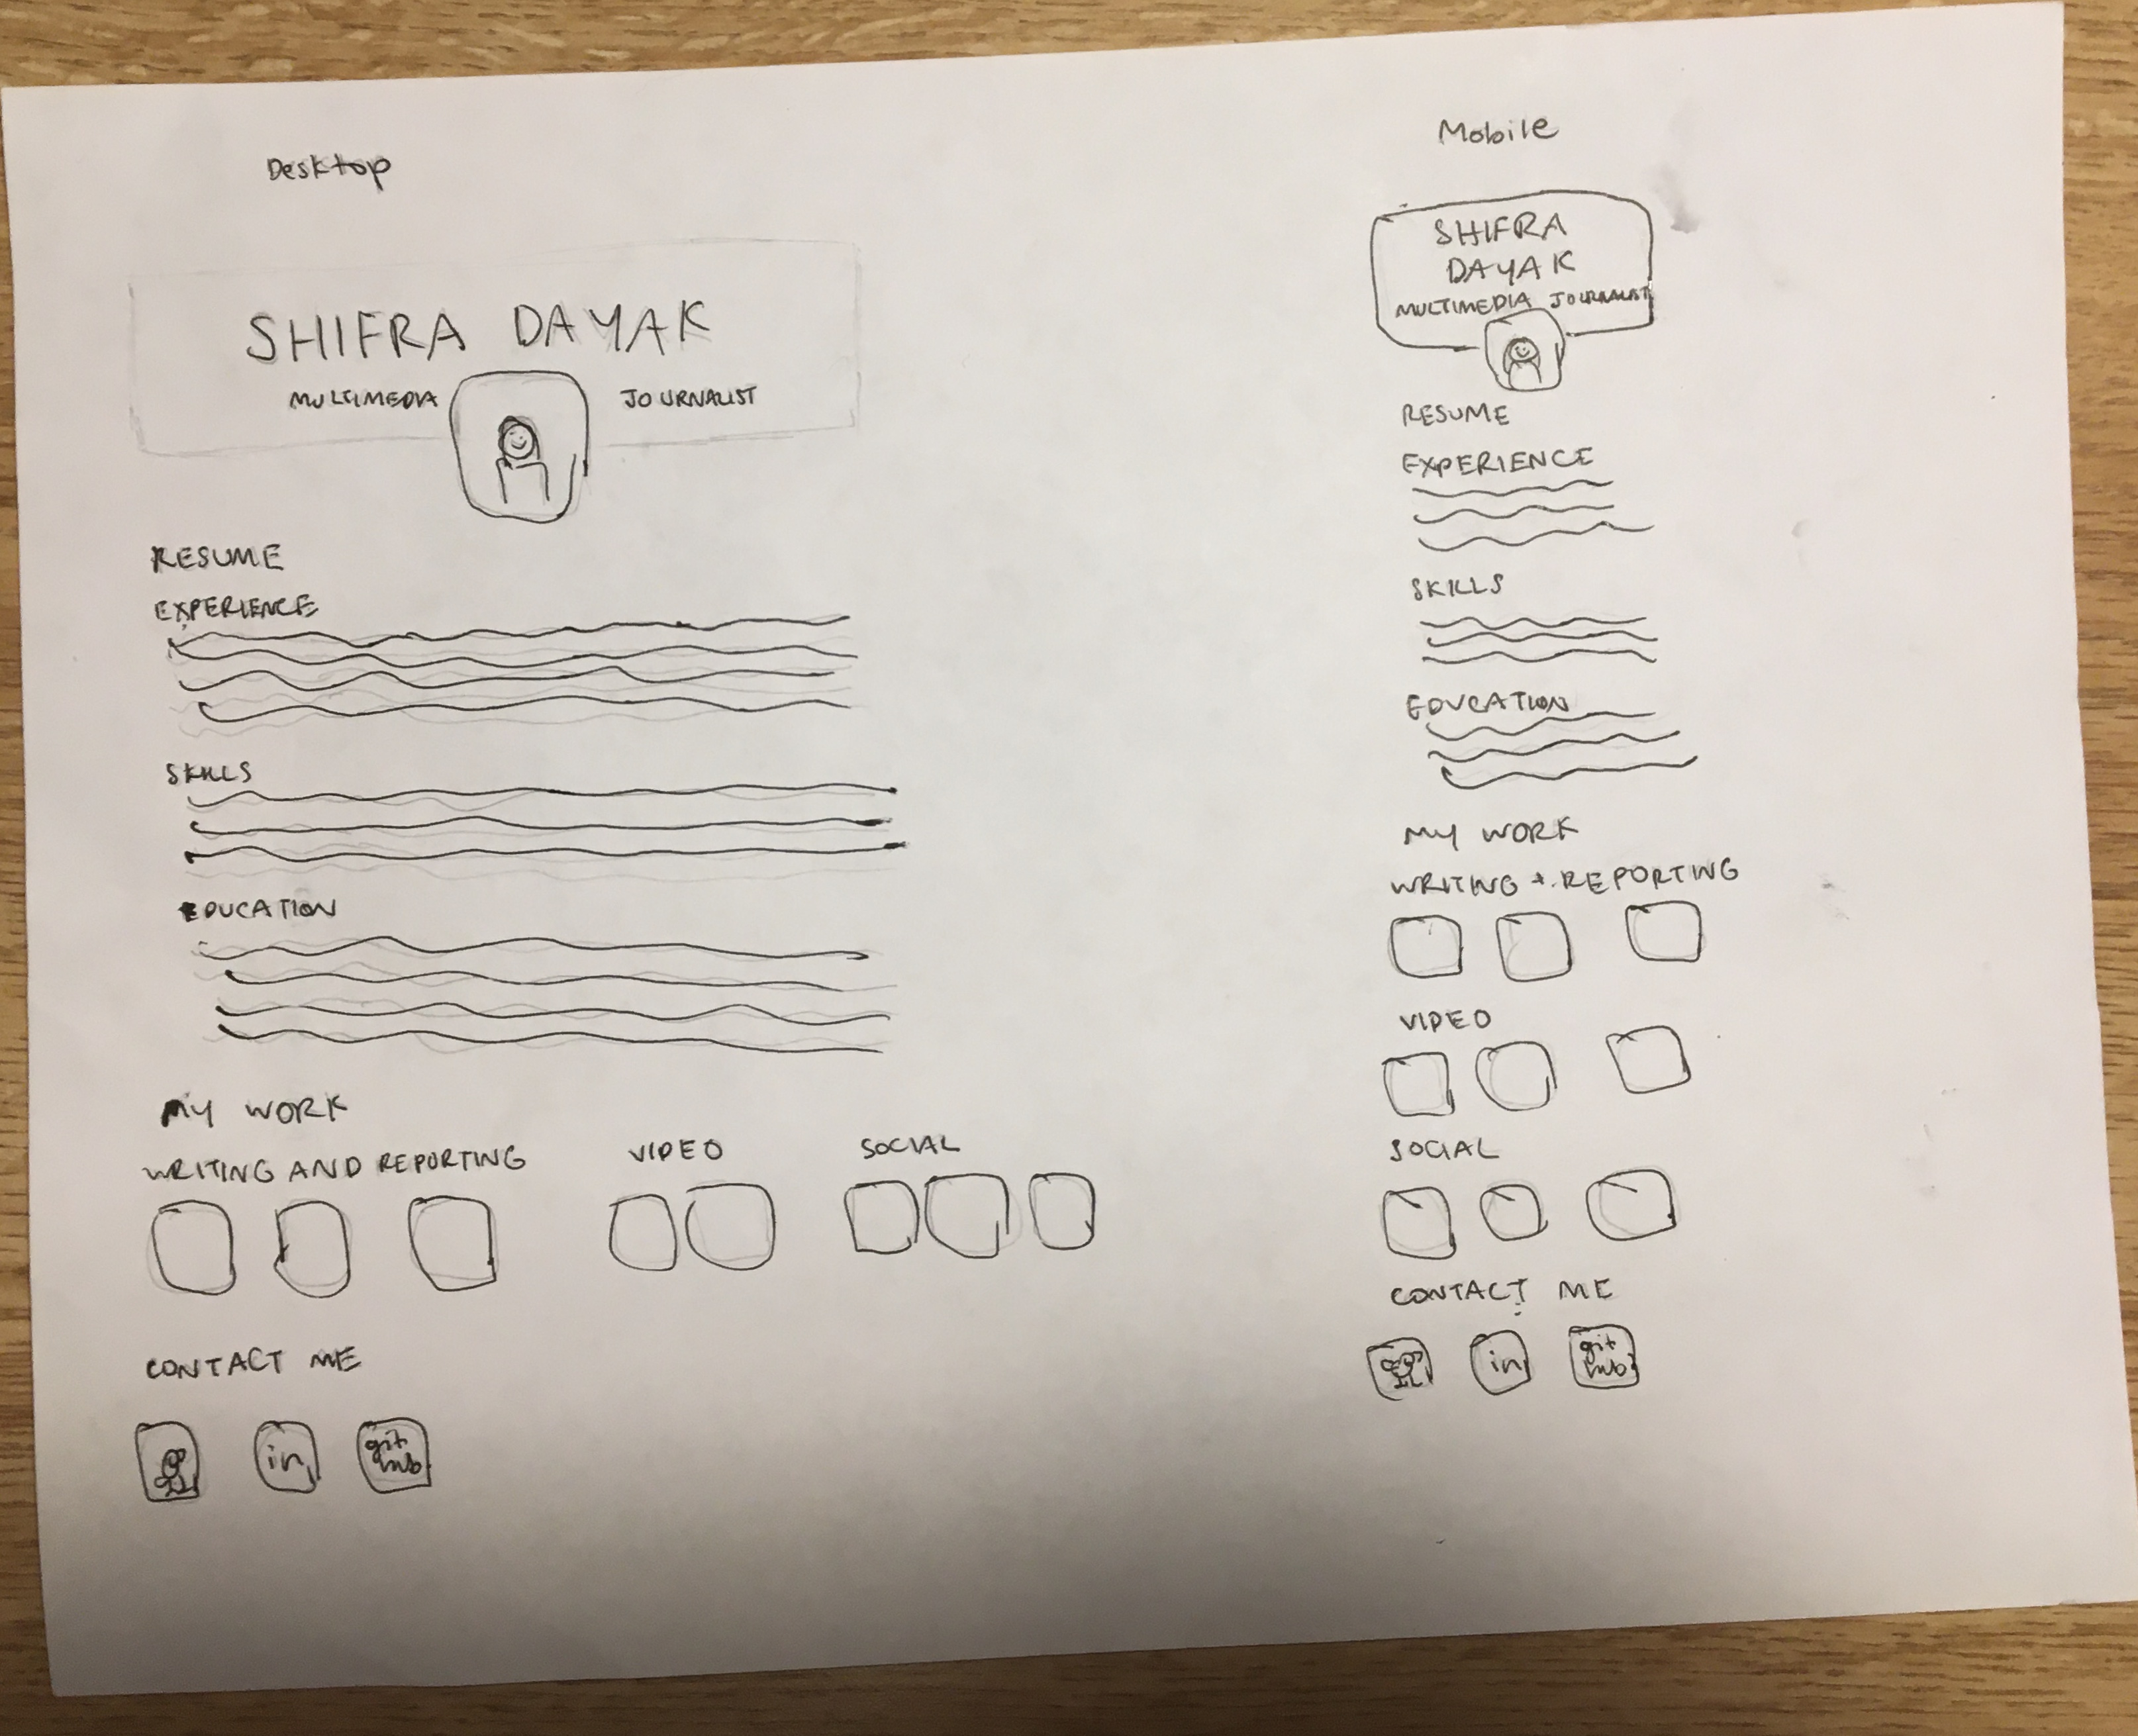 Desktop
SHIFRA DAYAK
MULTIMEDIA JOURNALIST
RESUME
EXPERIENCE
SKILLS
EDUCATION
MY WORK
WRITING AND REPORTING VIDEO SOCIAL
CONTACT ME
in
git
hub
Mobile
SHIFRA
DAYAK
MULTIMEDIA JOURNALIST
RESUME
EXPERIENCE
SKILLS
EDUCATION
MY WORK
WRITING + REPORTING
VIDEO
SOCIAL
CONTACT ME
in
git
hub